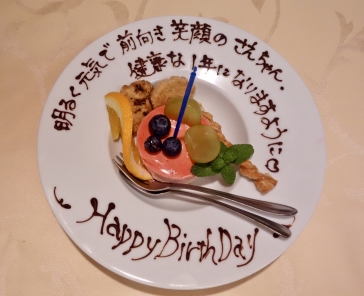 明るく元気で前向き笑顔のさえちゃん.
健康な1年になりますように♡
Happy BirthDay